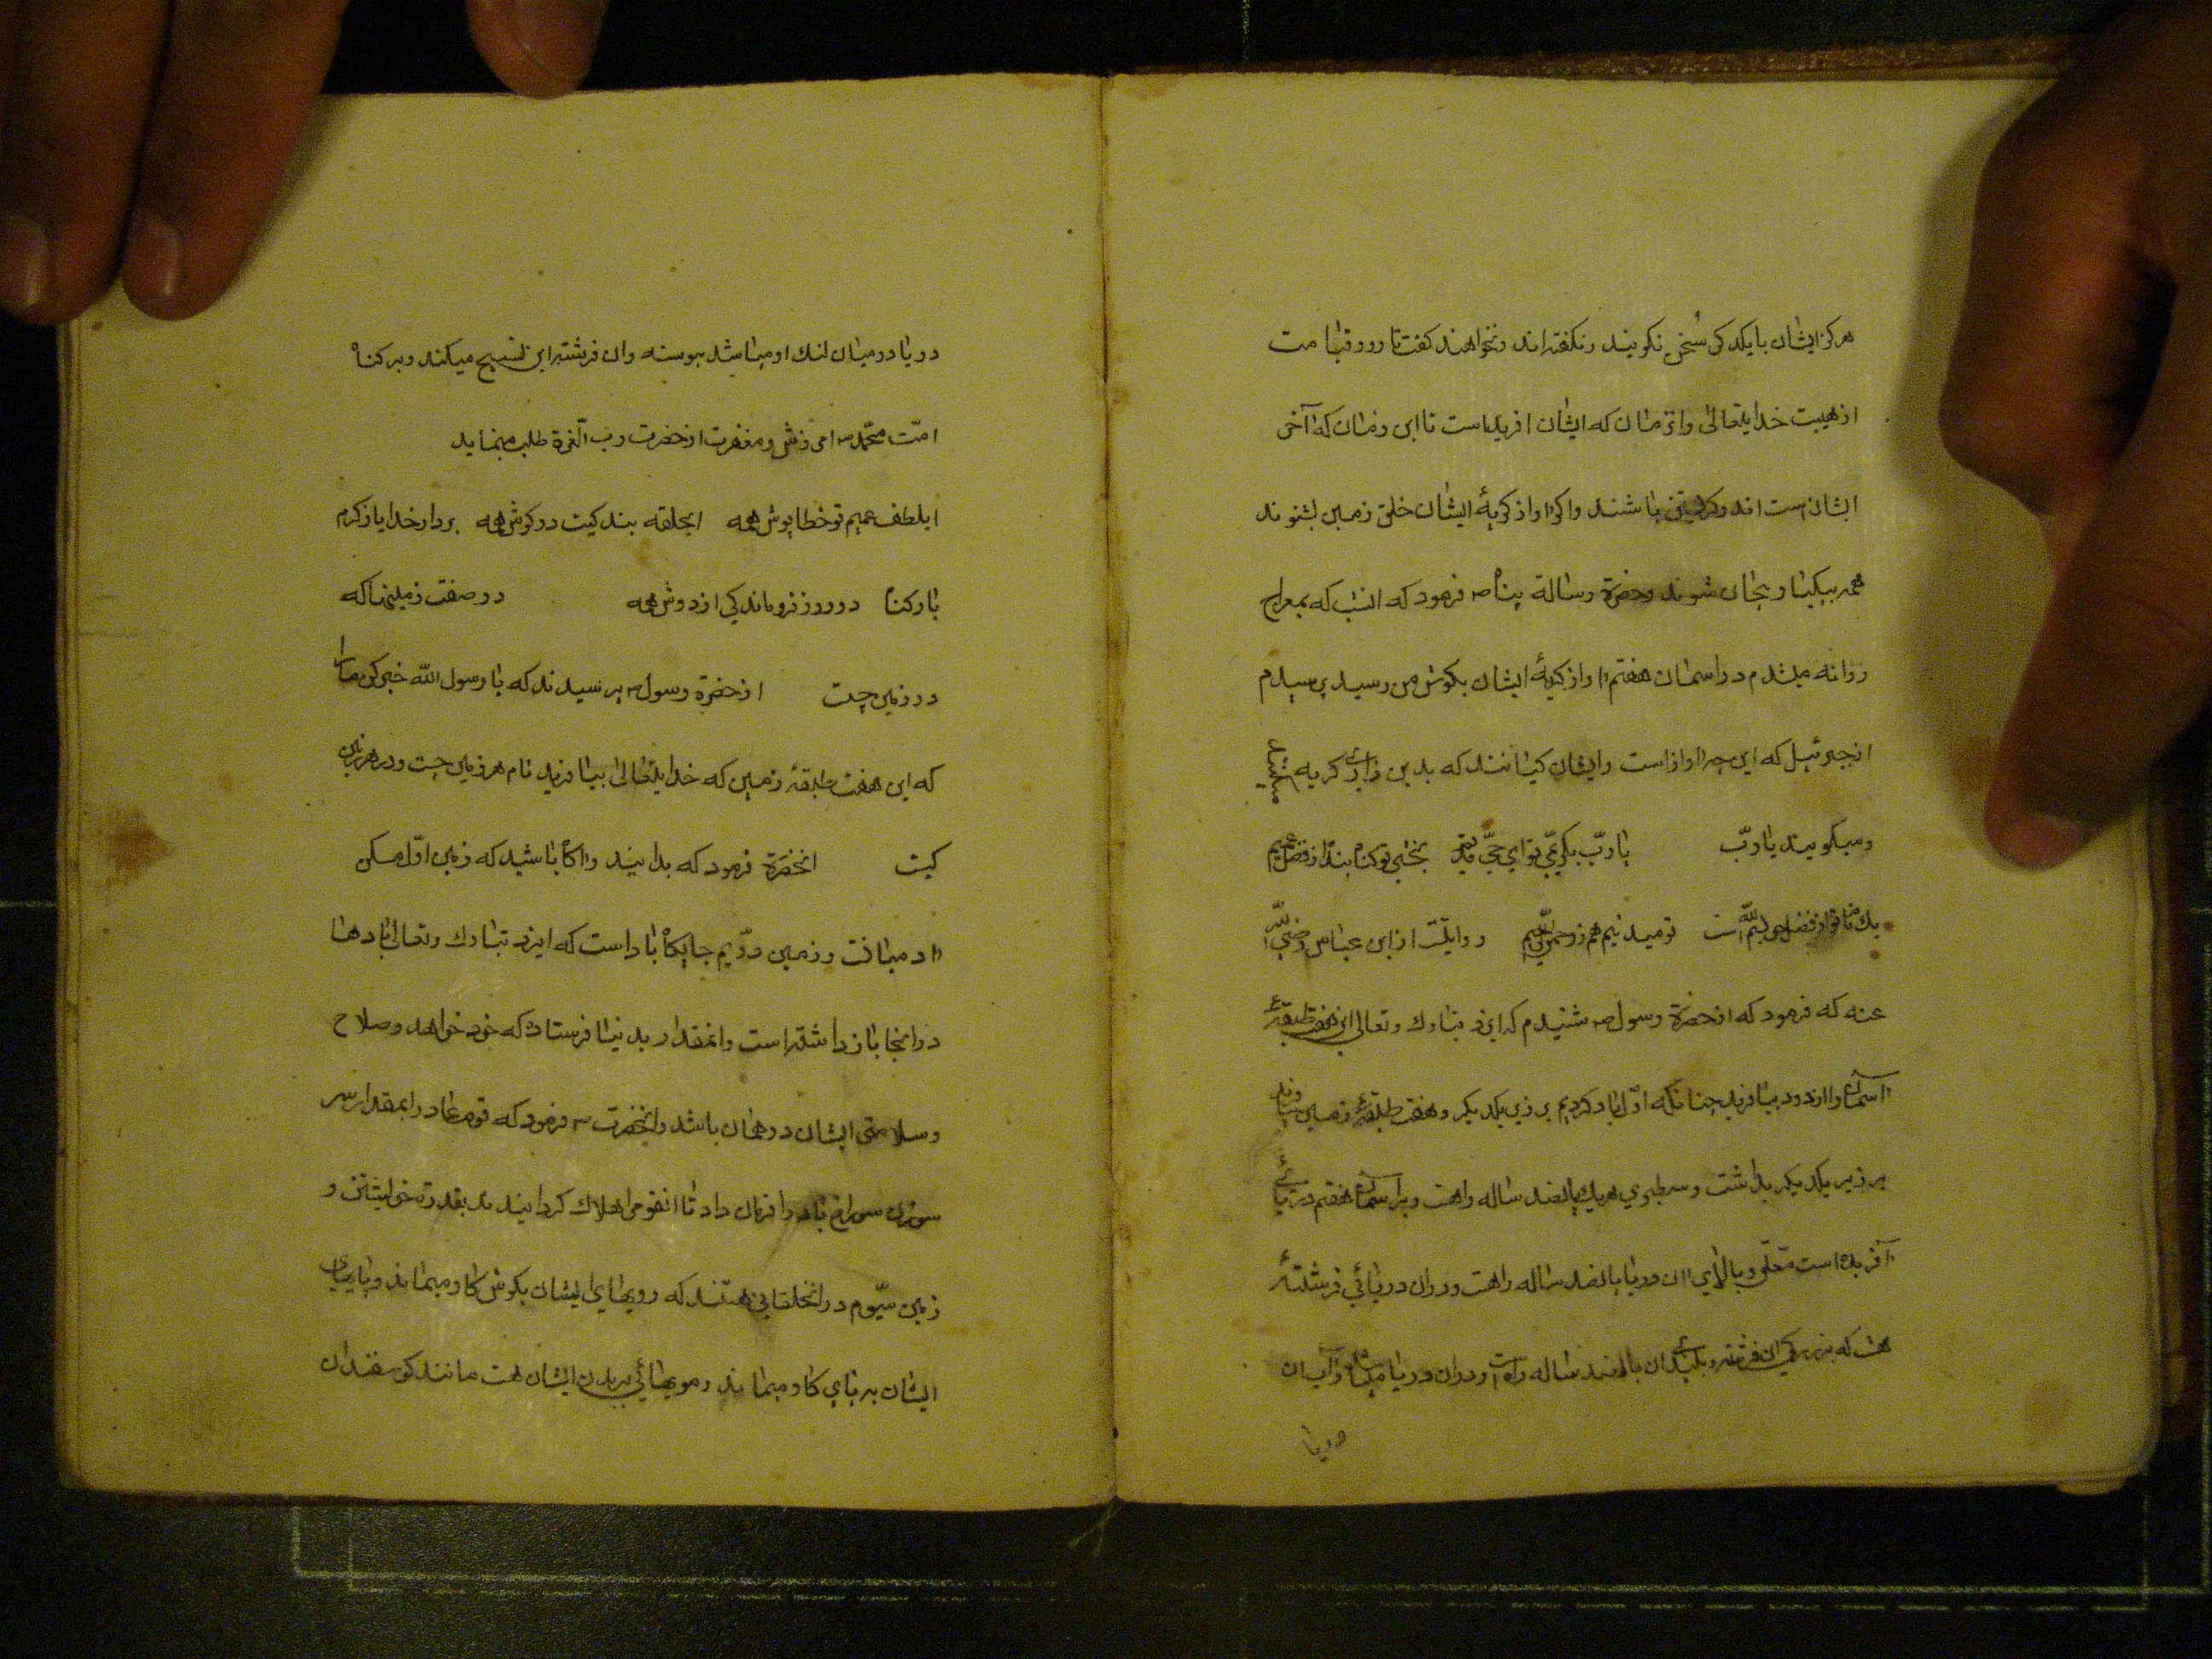 هرکز ایشان با یکدکر سُخن نکویند و نکفته‌اند و نخواهند کفت تا روز قیامت
از هیبت خدایتعالی و از زمان که ایشان افریده است تا این زمان که آخر
ایشان است اند و کریه باشند و اکر اواز کریهٔ ایشان خلق زمین بشنوند
همه بیکبار بیجان شوند و حضرة رسالة پناه ص فرمود که انشب که بمعراج
روانه میشدم در اسمان هفتم اواز کریهٔ ایشان بکوش من رسید پرسیدم
از جبرئیل که این چه اواز است و ایشان کیانند که بدین زاری کریه میکنند
و میکویند یا ربّ یا ربّ بکریمی تو ای حیّ قدیم بخشی تو کناه بنده از فضل عمیم
یك نام تو از فضل چو بسم اللّه است نومید نیم هم ز رحمن رحیم روایتست از ابن عباس رضی اللّه
عنه که فرمود که از حضرة رسول ص شنیدم که ایزد تبارك و تعالی این هفت طبقهٔ
اسمان را از دود بیافرید چنانکه اوّل یاد کردیم بر زبر یکدیکر و هفت طبقهٔ زمین بیافرید
بر زیر یکدیکر بداشت و سطبری هر یك پانصد ساله راهست و بر اسمان هفتم دریائی
آفریده است معلّق و بالای ان دریا پانصد ساله راهست و در ان دریائی فرشتهٔ
هست که بزرکی ان فرشته و بلندی ان پانصد ساله راه است و در ان دریا میباشد و آب ان
دریا
دریا در میان لنك او میباشد پیوسته و ان فرشته این تسبیح میکند و بر کناه
امّت محمّد ص امرزش و مغفرت از حضرت ربّ العزة طلب مینماید
ای لطف عمیم تو خطا پوش همه ای حلقه بندکیت در کوش همه بردار خدایا ز کرم
بار کناه در روز فروماندکی از دوش همه در صفت زمینها که
در زمین چیست از حضرة رسول ص پرسیدند که یا رسول اللّه خبر کن ما را
که این هفت طبقهٔ زمین که خدایتعالی بیافرید نام هر زمین چیست و در هر زمین
کیست انحضرة فرمود که بدانید و اکاه باشید که زمین اوّل مسکن
ادمیانست و زمین دوّیم جایکاه باد است که ایزد تبارك و تعالی باد ها
در انجا باز داشته است و انمقدار بدنیا فرستاد که خود خواهد و صلاح
و سلامتی ایشان در همان باشد و انحضرت ص فرمود که قوم عاد را بمقدار سر
سوزن سوراخ باد را فرمان داد تا انقوم را هلاك کردانیدند بقدرة خویشتن و
زمین سیّوم در انخلقانی هستند که رویهای ایشان بکوش کاو میماند و پایهای
ایشان بر پای کاو میماند و مویهائی بر بدن ایشان هست مانند کوسفندان